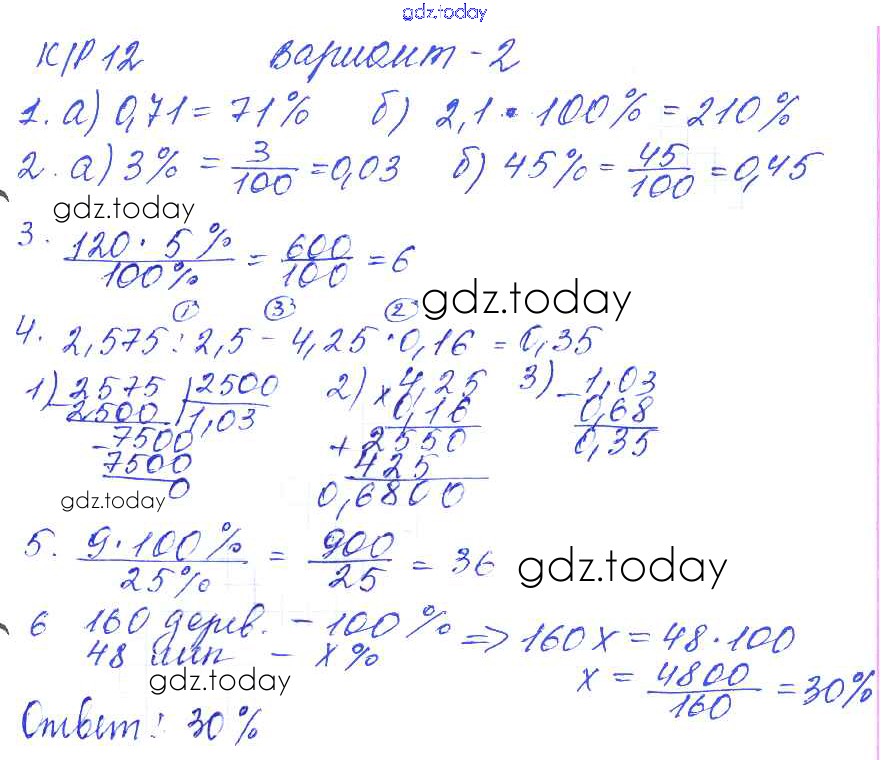 gdz.today
К/Р 12 Вариант - 2
1. а) 0,71 = 71% б) 2,1 · 100% = 210%
2. а) 3% = 3/100 = 0,03 б) 45% = 45/100 = 0,45
gdz.today
3. 120 · 5% / 100% = 600/100 = 6
gdz.today
1 3 2
4. 2,575 : 2,5 - 4,25 · 0,16 = 0,35
1) 2575 | 2500 2) × 4,25 3) - 1,03
- 2500 | 1,03 0,16 0,68
- 7500 + 2550 0,35
7500 425
0 0,6800
gdz.today
5. 9 · 100% / 25% = 900/25 = 36
gdz.today
6 160 дерев. - 100% => 160x = 48 · 100
48 лип - x% x = 4800/160 = 30%
gdz.today
Ответ: 30%